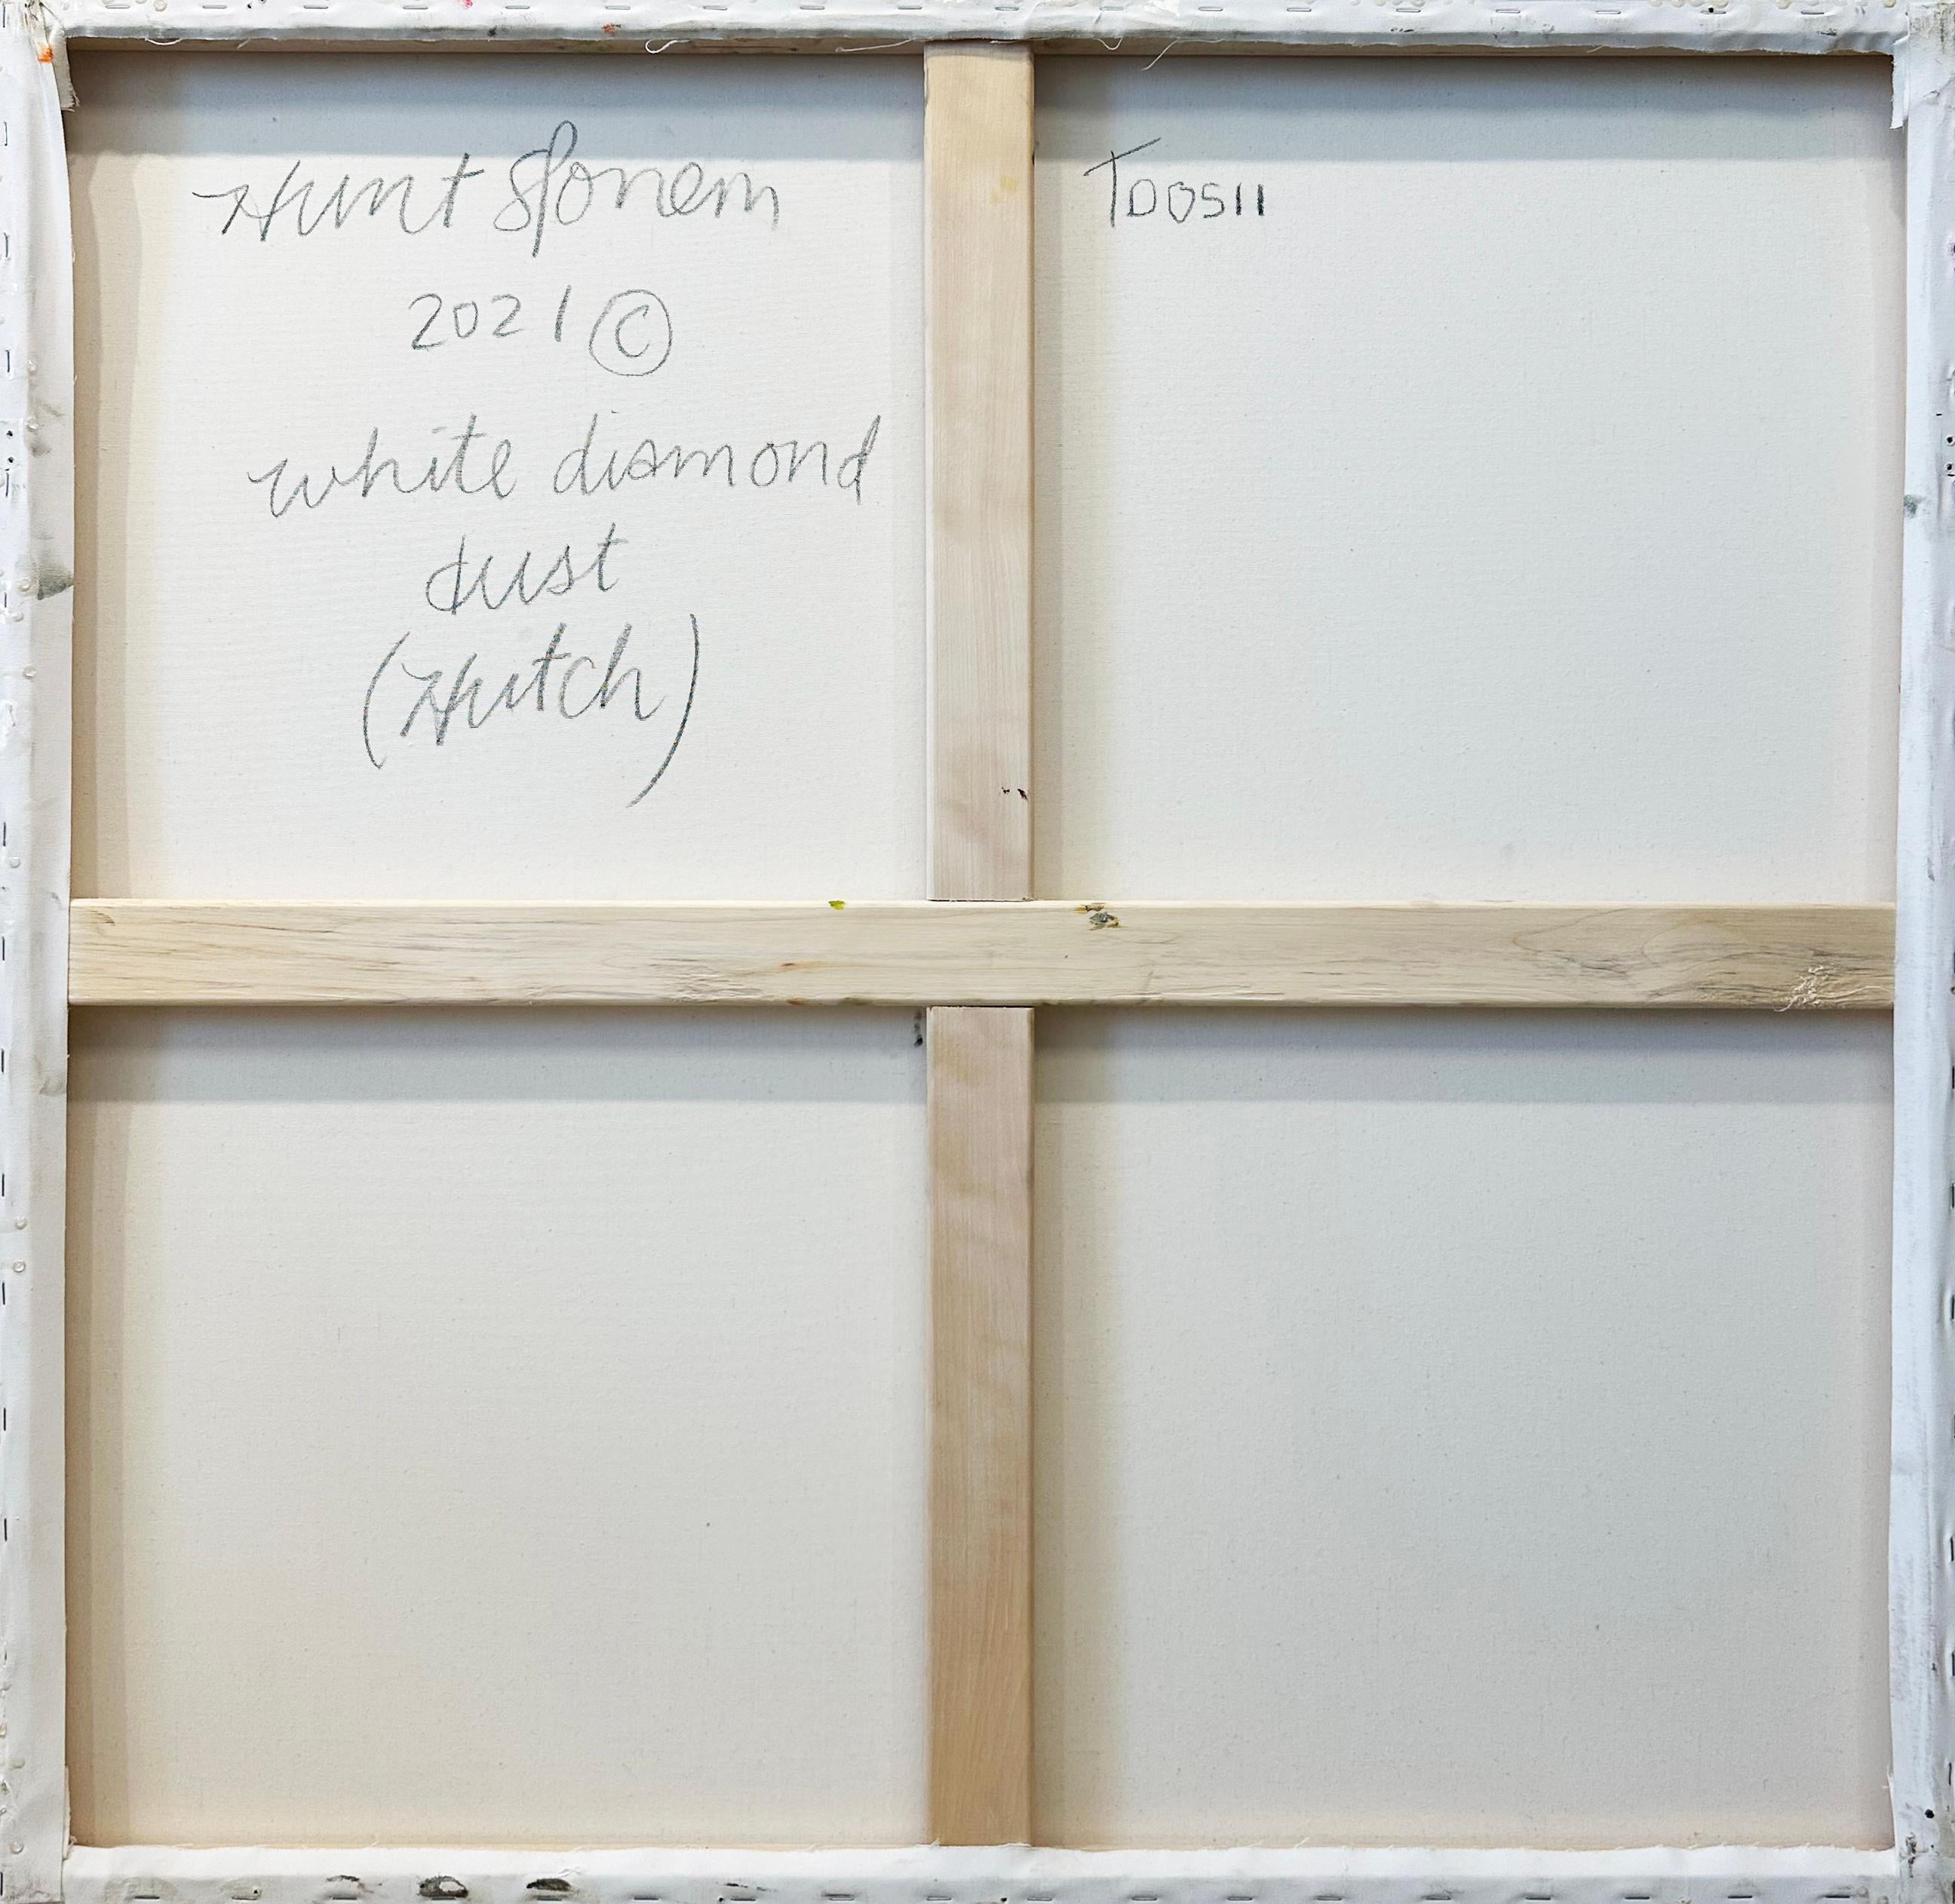 Hunt Slonem
2021 ©
white diamond
dust
(Hutch)
T00511